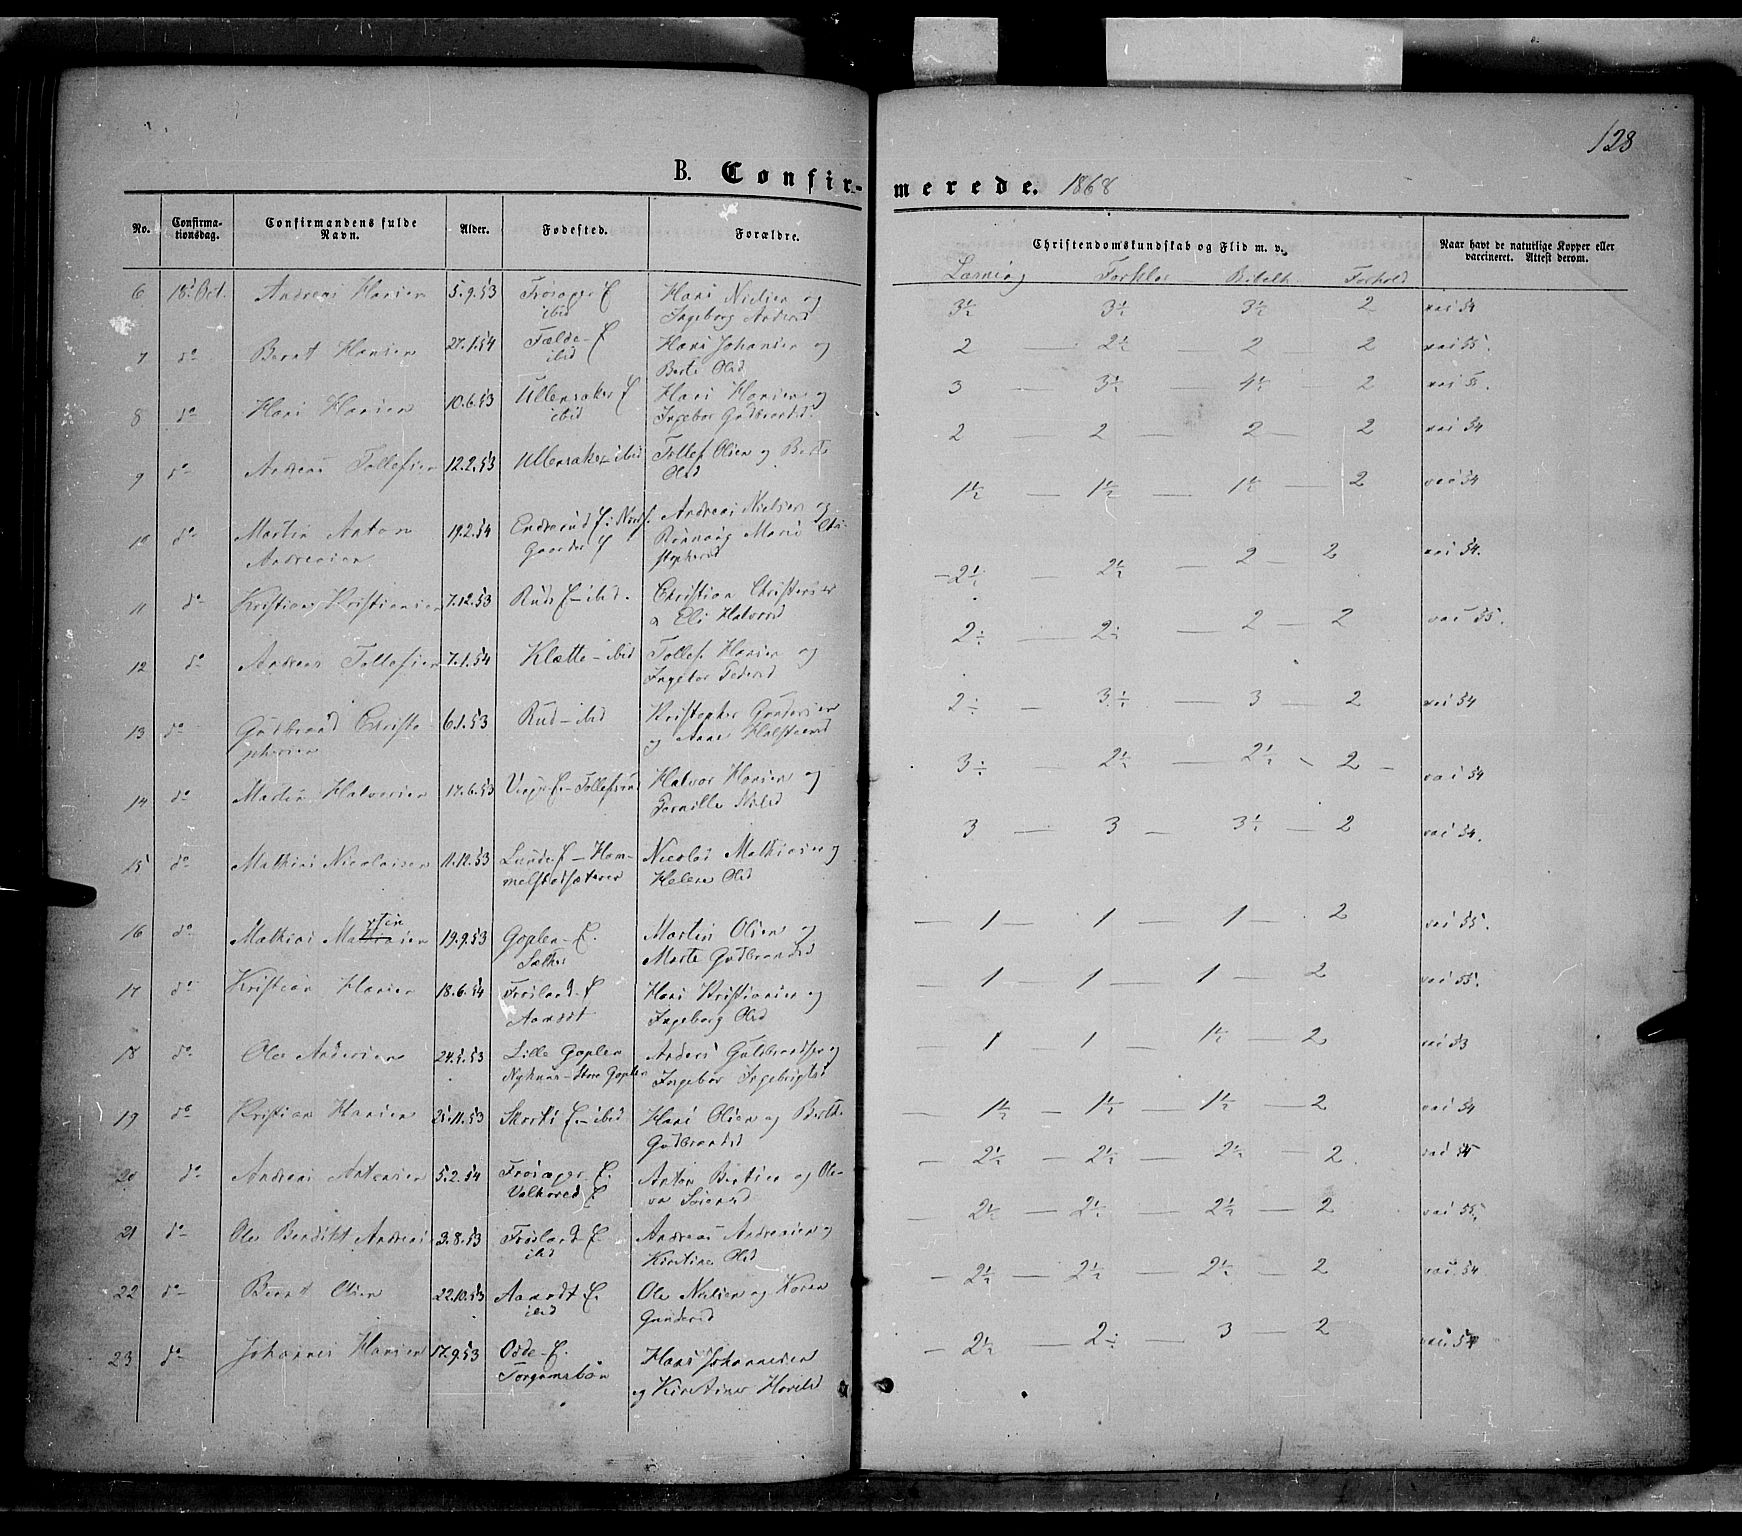 128
B. Confir-merede. 1868
No. Confirma-tionsdag. Confirmandens fulde Navn. Alder. Fødested. Forældre. Christendomskundskab og Flid m. v. Naar havt de natutlige Kopper eller vaccineret. Attest derom.
Læsning Forklar Bibelh Forhold
6 18 Oct. Andreas Hansen 5.9.53 Frøsager E ibid Hans Nielsen og Ingeborg Andersd 3½ 3½ 3½ 2 vac 54
7 do Bernt Hansen 27.1.54 Fælde E ibid Hans Johansen og Berte Olsd 2 — 2½ — 2 — 2 vac 55.
8 do Hans Hansen 10.6.53 Ullensaker E ibid Hans Hansen og Ingebor Gudbrandsd. 3 — 3½ — 4½ 2 vac 55.
9 do Andreas Tollefsen 12.2.53 Ullensaker — ibid Tollef Olsen og Berte Olsd 2 — 2 — 2 — 2 vac 54
10 do Martin Anton Andreasen 19.2.54 Andreas Nielsen og Marie Christophersd 1½ — 1½ — 1½ — 2 vac 54
11 do Kristian Kristiansen 7.12.53 Ruds E — ibid. Christian Christensen & Eli Halvorsd — 2½ — 2½ — 2 — 2 vac 54.
12 do Andreas Tollefsen 7.1.54 Klætte — ibid Tollef Hansen og Ingebor Pedersd 2½ — 2½ — 2 — 2 vac 55.
13 do Gudbrand Christophersen 6.1.53 Rud — ibid Kristopher Gundersen og Anne Halstensd 2½ — 3½ — 3 — 2 vac 54
14 do Martin Halvorsen 17.6.53 Halvor Hansen og Pernille Nilsd 3½ — 2½ — 2½ — 2 — vac 54
15 do Mathias Nicolaisen 11.12.53 Lunde E — Hammelstadsæteren Nicolai Mathiasen og Helene Olsd 3 — 3 — 3½ — 2 vac 54.
16 do Mathias Martinsen 19.9.53 Goplen E. Sælher Martin Olsen og Marte Gudbrandsd — 1 — 1 — 1 — 2 vac 55.
17 do Kristian Hansen 18.6.54 Frøsland E Aarødt Hans Kristiansen og Ingeborg Olsd — 1 — 1 — 1 — 2 vac 55.
18 do Ole Andersen Lille Goplen Nyknus — Store Goplen Anders Guldbrandsen og Ingebor Ingebrigtsd — 1 — 1 — 1½ — 2 vac 53
19 do Kristian Hansen 25.11.53 Skorti E — ibid Hans Olsen og Berthe Gudbrandsd — 1½ — 1½ — 1½ — 2 vac 54
20 do Andreas Antonsen 5.2.54 Frøsager E. Valhovd E Anton Berntsen og Oleva Sørensd — 2½ — 2½ — 2½ — 2. vac 55
21 do Ole Bendikt Andreas 3.8.53 Frøsland E ibid Andreas Andreasen og Kirstine Olsd — 2½ — 2½ — 2½ — 2 vac 55.
22 do Bernt Olsen 22.10.53 Aarødt E. ibid Ole Nielsen og Karen Gundersd — 2½ — 2½ — 2½ — 2 vac. 54
23 do Johannes Hansen 17.9.53 Odde E. Torgunsbøn Hans Johannesen og Kirstine Hovelsd — 2½ — 2½ — 3 — 2 vac 54